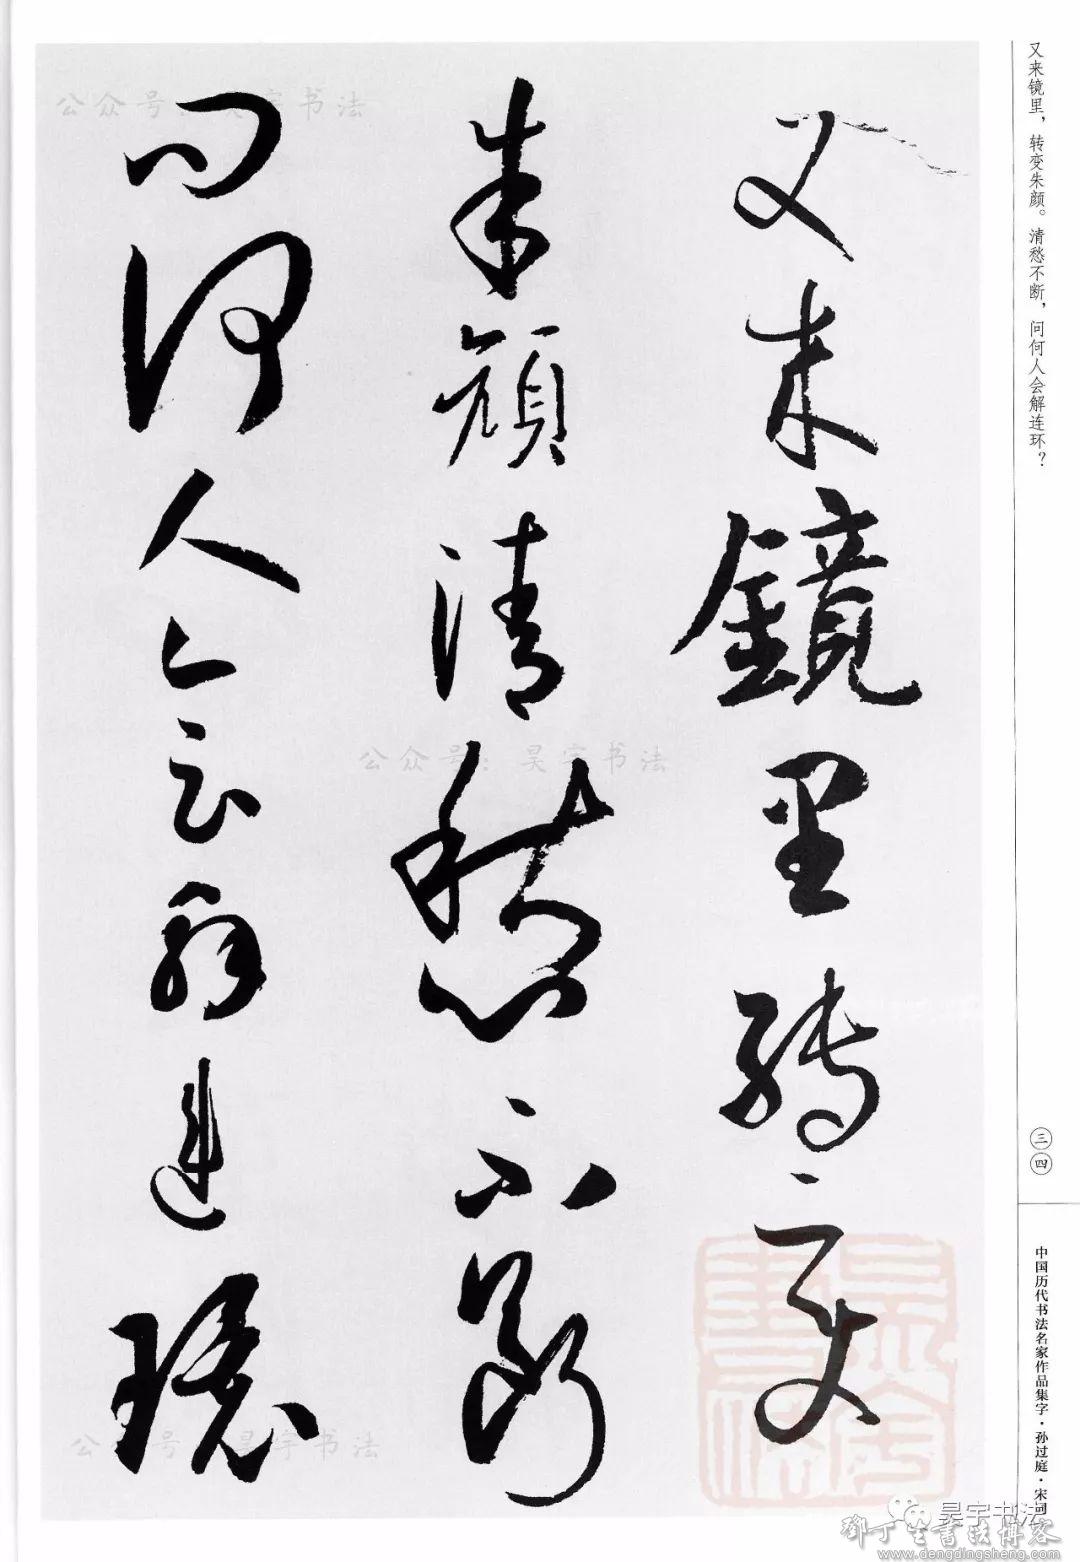 又来镜里，转变朱颜。清愁不断，问何人会解连环？
又来鏡里转变
朱颜清愁不断
问何人会解连環
三四
中国历代书法名家作品集字·孙过庭·宋词
公众号：昊宇书法
公众号：昊宇书法
公众号：昊宇书法
昊宇书法
鄧丁生書法博客
www.dengdingsheng.com